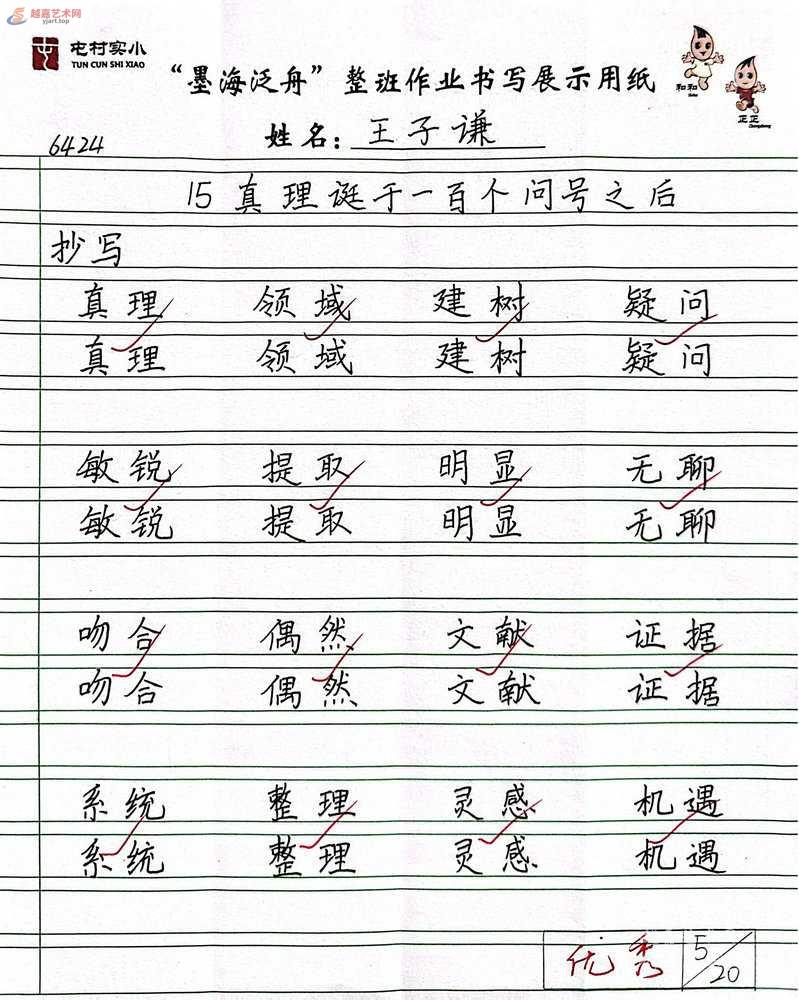 越嘉艺术网
yjart.top
屯村实小
TUN CUN SHI XIAO
“墨海泛舟”整班作业书写展示用纸
和和
正正
6424
姓名：王子谦
15 真理诞于一百个问号之后
抄写
真理 领域 建树 疑问
真理 领域 建树 疑问
敏锐 提取 明显 无聊
敏锐 提取 明显 无聊
吻合 偶然 文献 证据
吻合 偶然 文献 证据
系统 整理 灵感 机遇
系统 整理 灵感 机遇
优秀 5/20